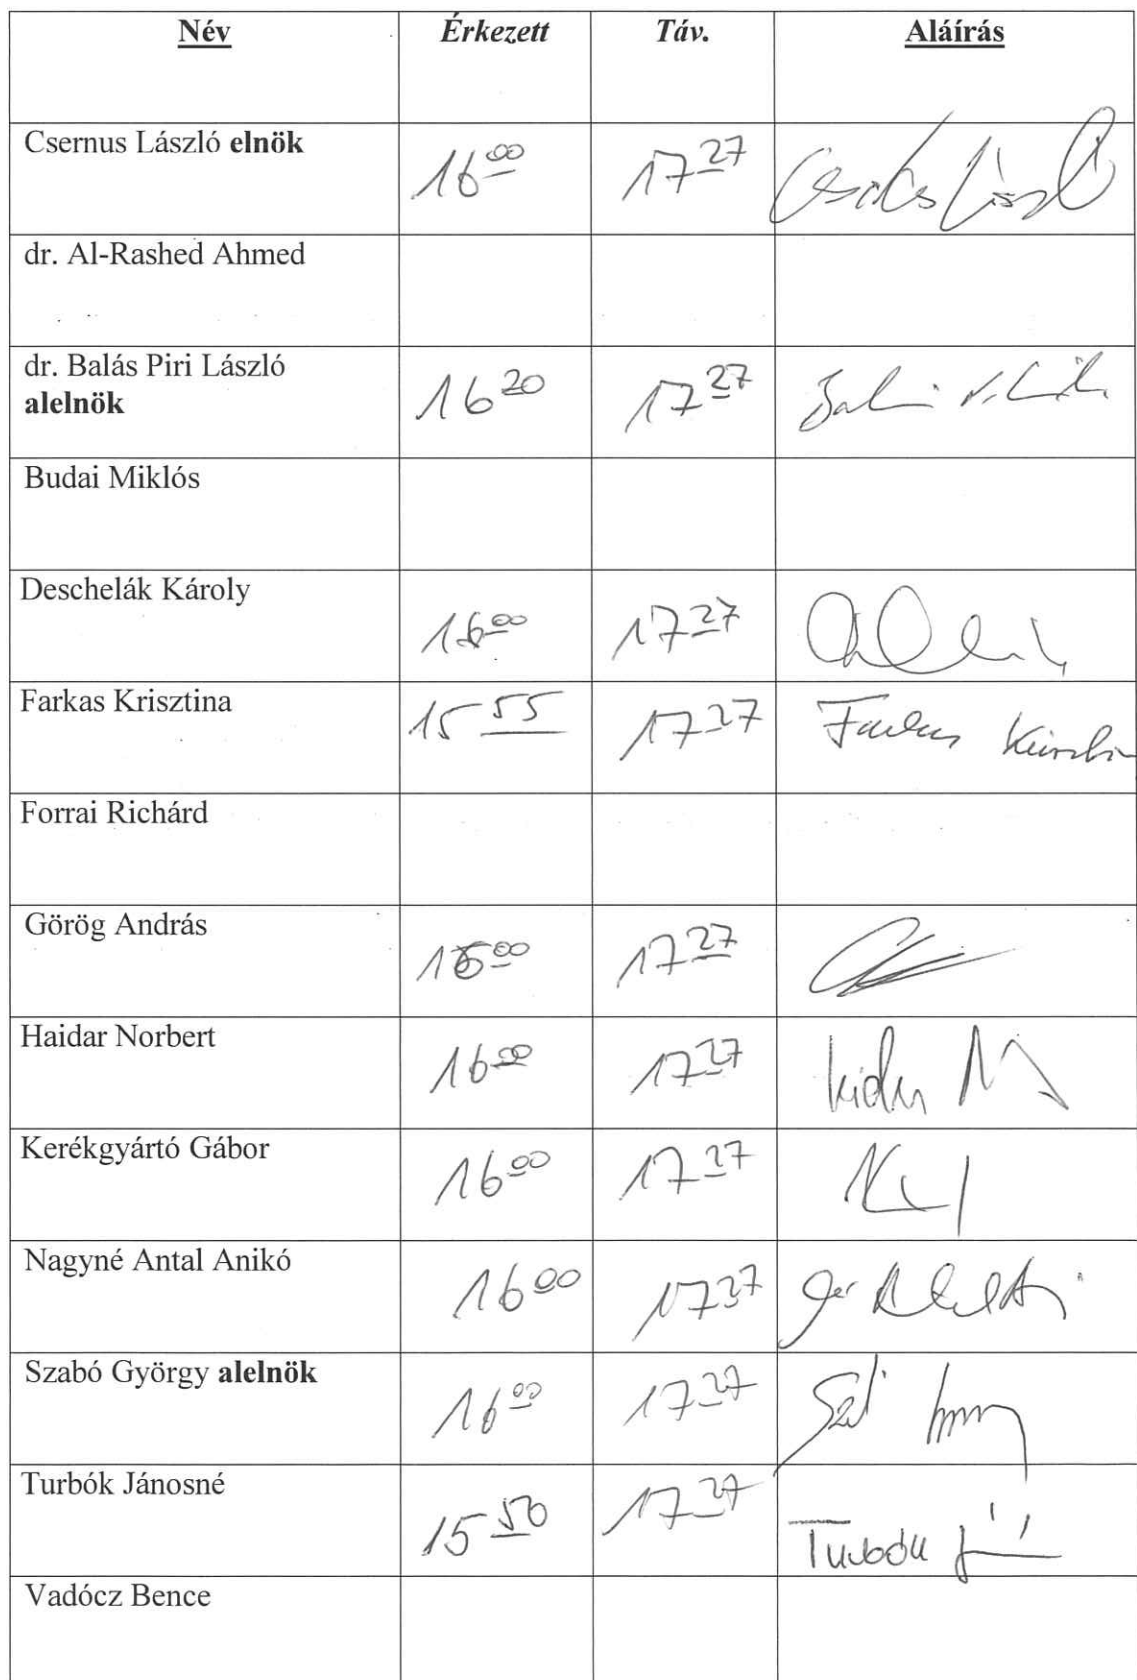 Név Érkezett Táv. Aláírás
Csernus László elnök 16⁰⁰ 17²⁷ Csernus László
dr. Al-Rashed Ahmed
dr. Balás Piri László
alelnök 16²⁰ 17²⁷
Budai Miklós
Deschelák Károly 16⁰⁰ 17²⁷
Farkas Krisztina 15⁵⁵ 17²⁷ Farkas Krisztina
Forrai Richárd
Görög András 16⁰⁰ 17²⁷
Haidar Norbert 16⁰⁰ 17²⁷
Kerékgyártó Gábor 16⁰⁰ 17²⁷
Nagyné Antal Anikó 16⁰⁰ 17²⁷
Szabó György alelnök 16⁰⁰ 17²⁷
Turbók Jánosné 15⁵⁰ 17²⁷ Turbók
Vadócz Bence